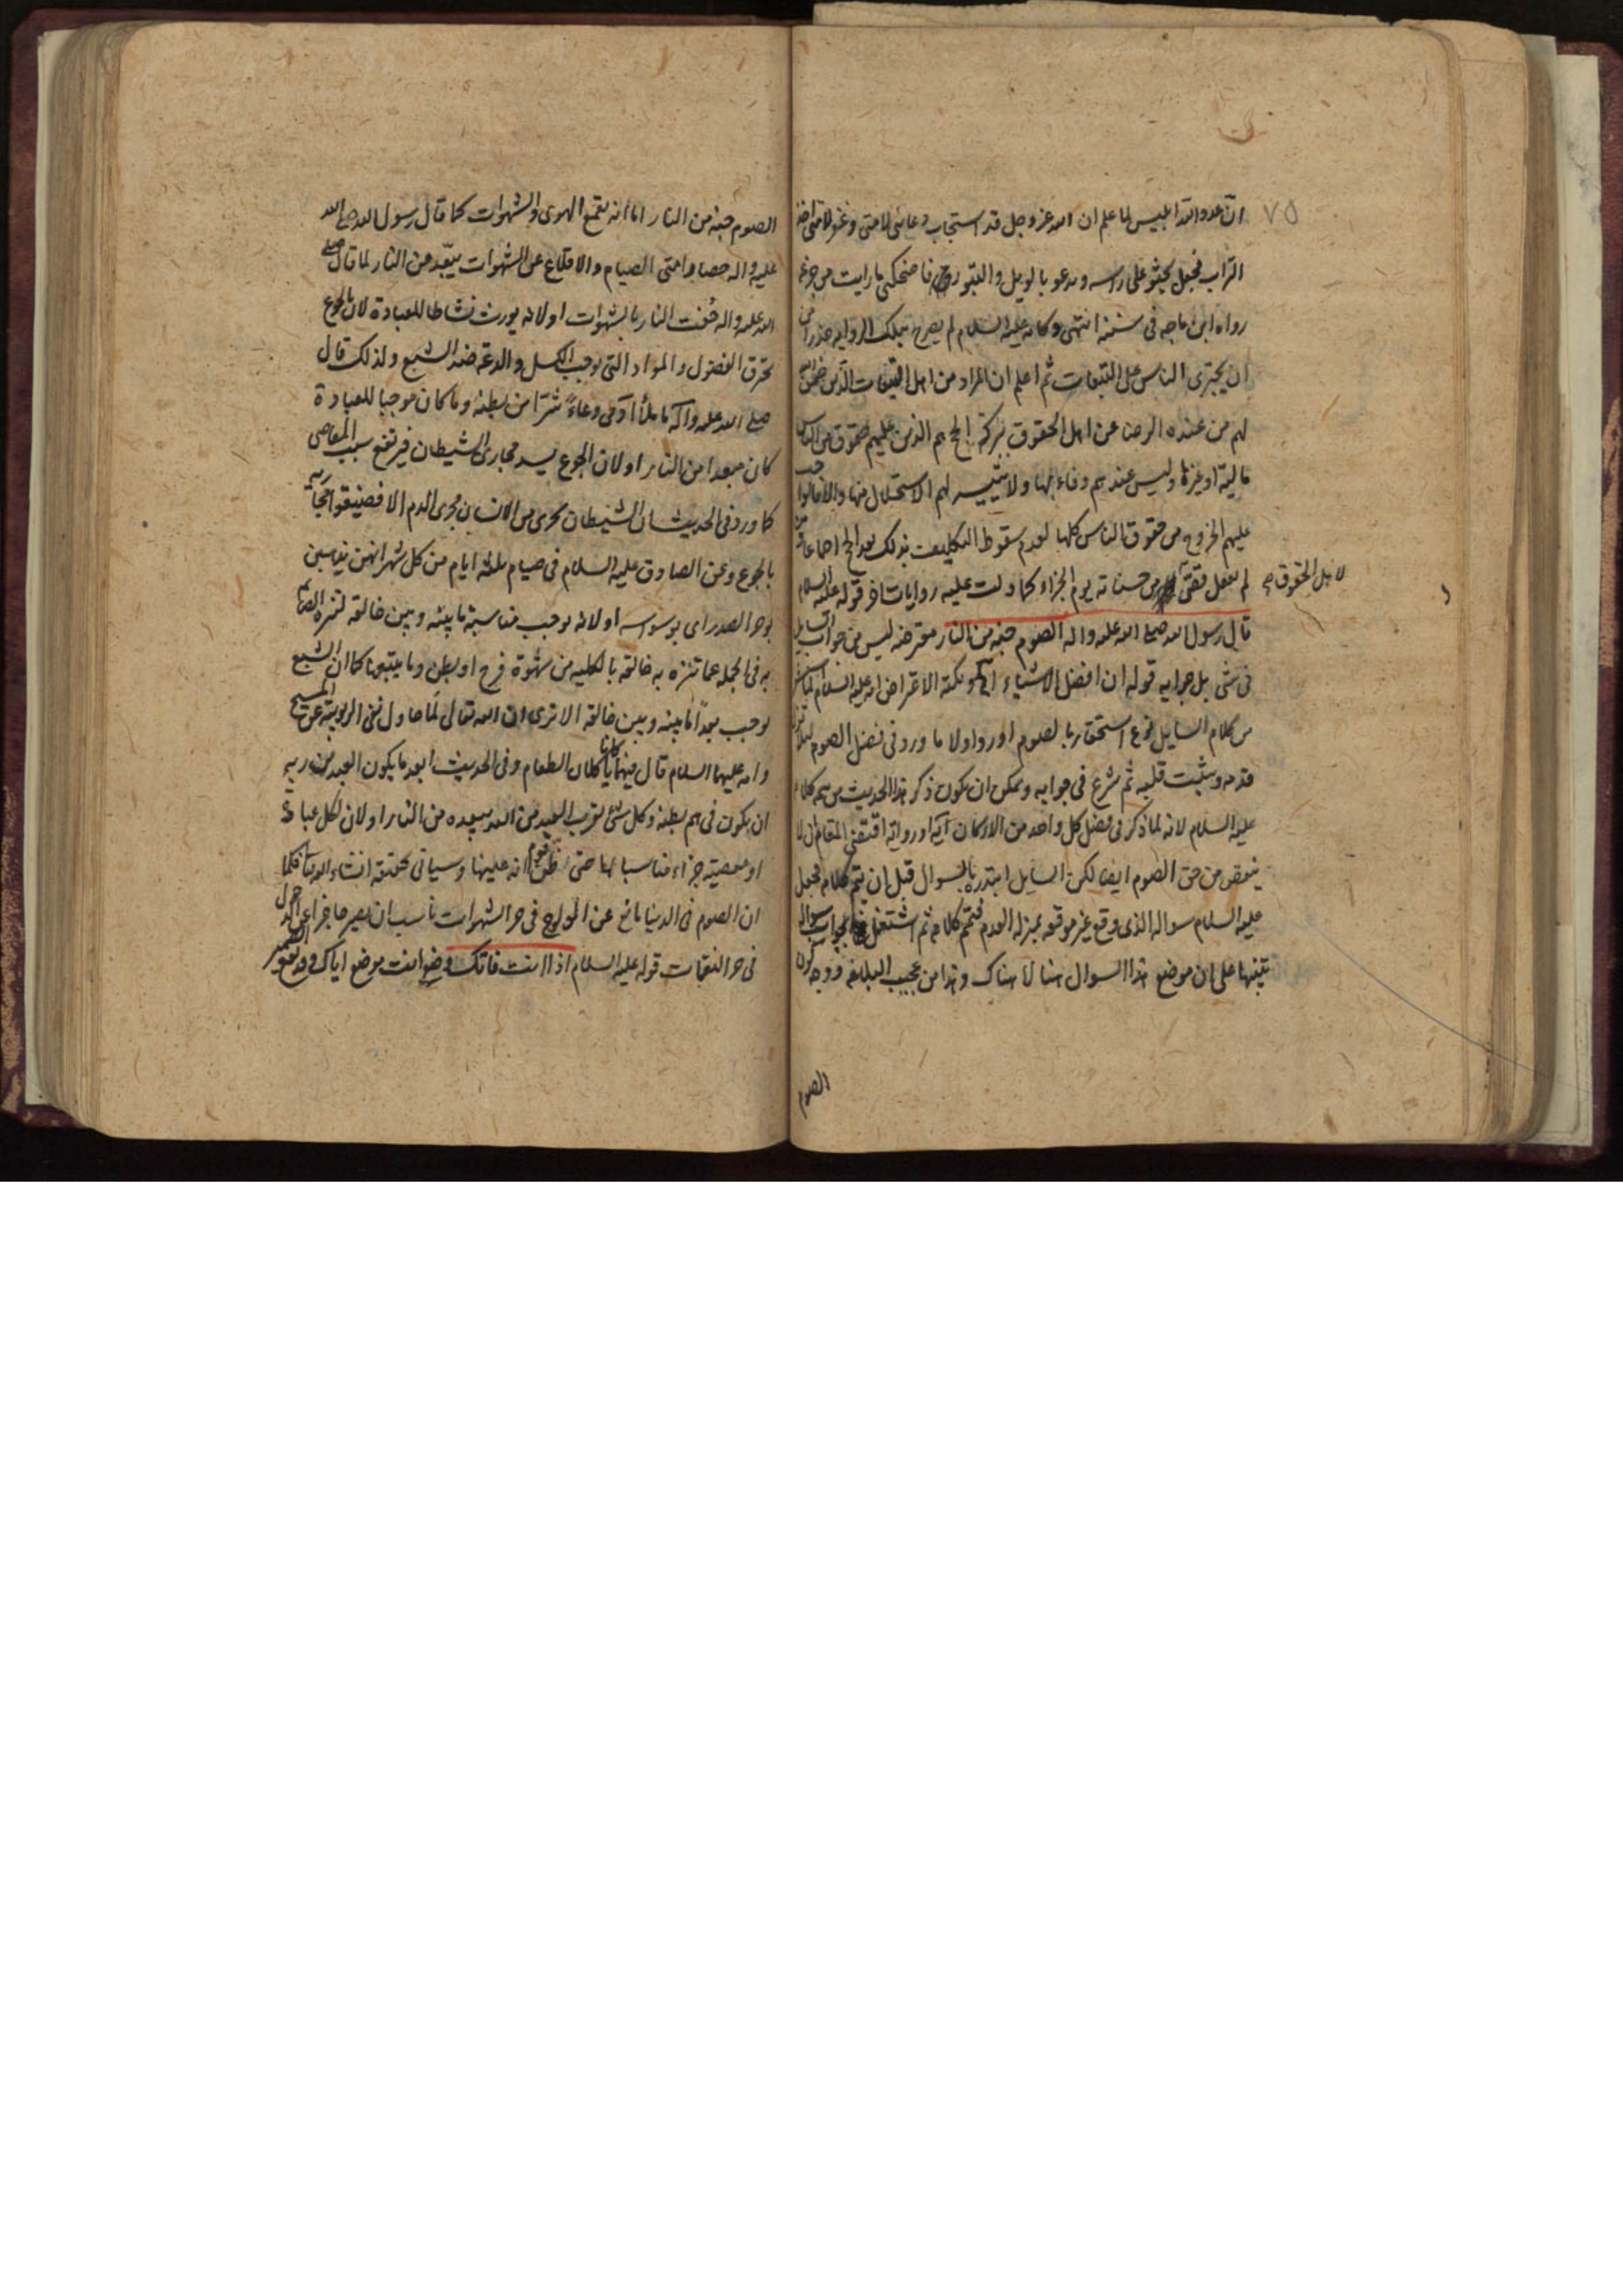 ٧٥
ان عدو الله ابليس لما علم ان الله عز وجل قد استجاب دعائى لامتى وغفر لامتى اخذ
التراب فجعل يحثو على راسه ويدعو بالويل والثبور فاضحكنى ما رايت من جزعه
رواه ابن ماجه فى سننه انتهى وكانه عليه السلام لم يصرح بتلك الروايه حذرا من
ان يجترى الناس على التبعات ثم اعلم ان المراد من اهل التبعات الذين ضمن
لهم من عنده الرضا عن اهل الحقوق ببركة الحج هم الذين عليهم حقوق من الناس
مالية او غيرها وليس عندهم وفاء بها ولا تيسر لهم الاستحلال منها والا فالواجب
عليهم الخروج من حقوق الناس كلها لعدم سقوط التكليف بذلك بعد الحج اجماعا فمن
لم يفعل يقتص من حسناته يوم الجزاء كما دلت عليه روايات اخر قوله عليه السلام
لاهل الحقوق صح
قال رسول الله صلى الله عليه واله الصوم جنة من النار معترضه ليس من جواب السايل
فى شى بل جوابه قوله ان افضل الاشياء الخ ونكتة الاعتراض انه عليه السلام لما
من كلام السايل نوع استحقار بالصوم اورد اولا ما ورد فى فضل الصوم لئلا
قدمه ويثبت قلبه ثم شرع فى جوابه ويمكن ان يكون ذكر هذا الحديث من تتمه كلامه
عليه السلام لانه لما ذكر فى فضل كل واحد من الاركان آية او رواية اقتضى المقام ان لا
ينقص من حق الصوم ايضا لكن السايل ابتدره بالسوال قبل ان يتم كلامه فجعل
عليه السلام سواله الذى وقع غير موقعه بمنزله العدم فتمم كلامه ثم اشتغل بجواب سواله
تنبيها على ان موضع هذا السوال هنا لا هناك وهذا من عجيب البلاغه ووجه كون
الصوم
الصوم جنة من النار اما انه يقمع الهوى والشهوات كما قال رسول الله صلى الله
عليه واله خصاء امتى الصيام والاقلاع عن الشهوات يبعد من النار لما قال صلى
الله عليه واله حُفت النار بالشهوات او لانه يورث نشاطا للعبادة لان الجوع
يحرق الفضول والمواد التى توجب الكسل والدعة ضد الشبع ولذلك قال
صلى الله عليه واله ما ملأ آدمى وعاءً شرّا من بطنه وما كان موجبا للعبادة
كان مبعدا من النار او لان الجوع يسد مجارى الشيطان فيرتفع سبب المعاصى
كما ورد فى الحديث ان الشيطان يجرى من الانسان مجرى الدم الا فضيقوا مجاريه
بالجوع وعن الصادق عليه السلام فى صيام ثلثه ايام من كل شهر انهن يذهبن
بوحر الصدر اى بوسوسه او لانه يوجب مناسبة ما بينه وبين خالقه لتنزه الصائم
به فى الجمله عما تنزه به خالقه بالكليه من شهوة فرج او بطن وما يتبعها كما ان الشبع
يوجب بعداً ما بينه وبين خالقه الا ترى ان الله تعالى لما حاول نفى الربوبية عن المسيح
وامه عليهما السلام قال فيهما كانا ياكلان الطعام وفى الحديث ابعد ما يكون العبد من ربه
ان يكون فى هم بطنه وكل شئ يقرب العبد من الله يبعده من النار او لان لكل عبادة
او معصية جزاء مناسبا لها حتى ظن قوم انه عليها وسياتى تحقيقه انشاء الله تعا فكما
ان الصوم فى الدنيا مانع عن الولوج فى حر الشهوات ناسب ان يصير حاجزا عن الدخول
فى حر النقمات قوله عليه السلام اذا انت فاتك وضع انت موضع اياك ووقع الضمير